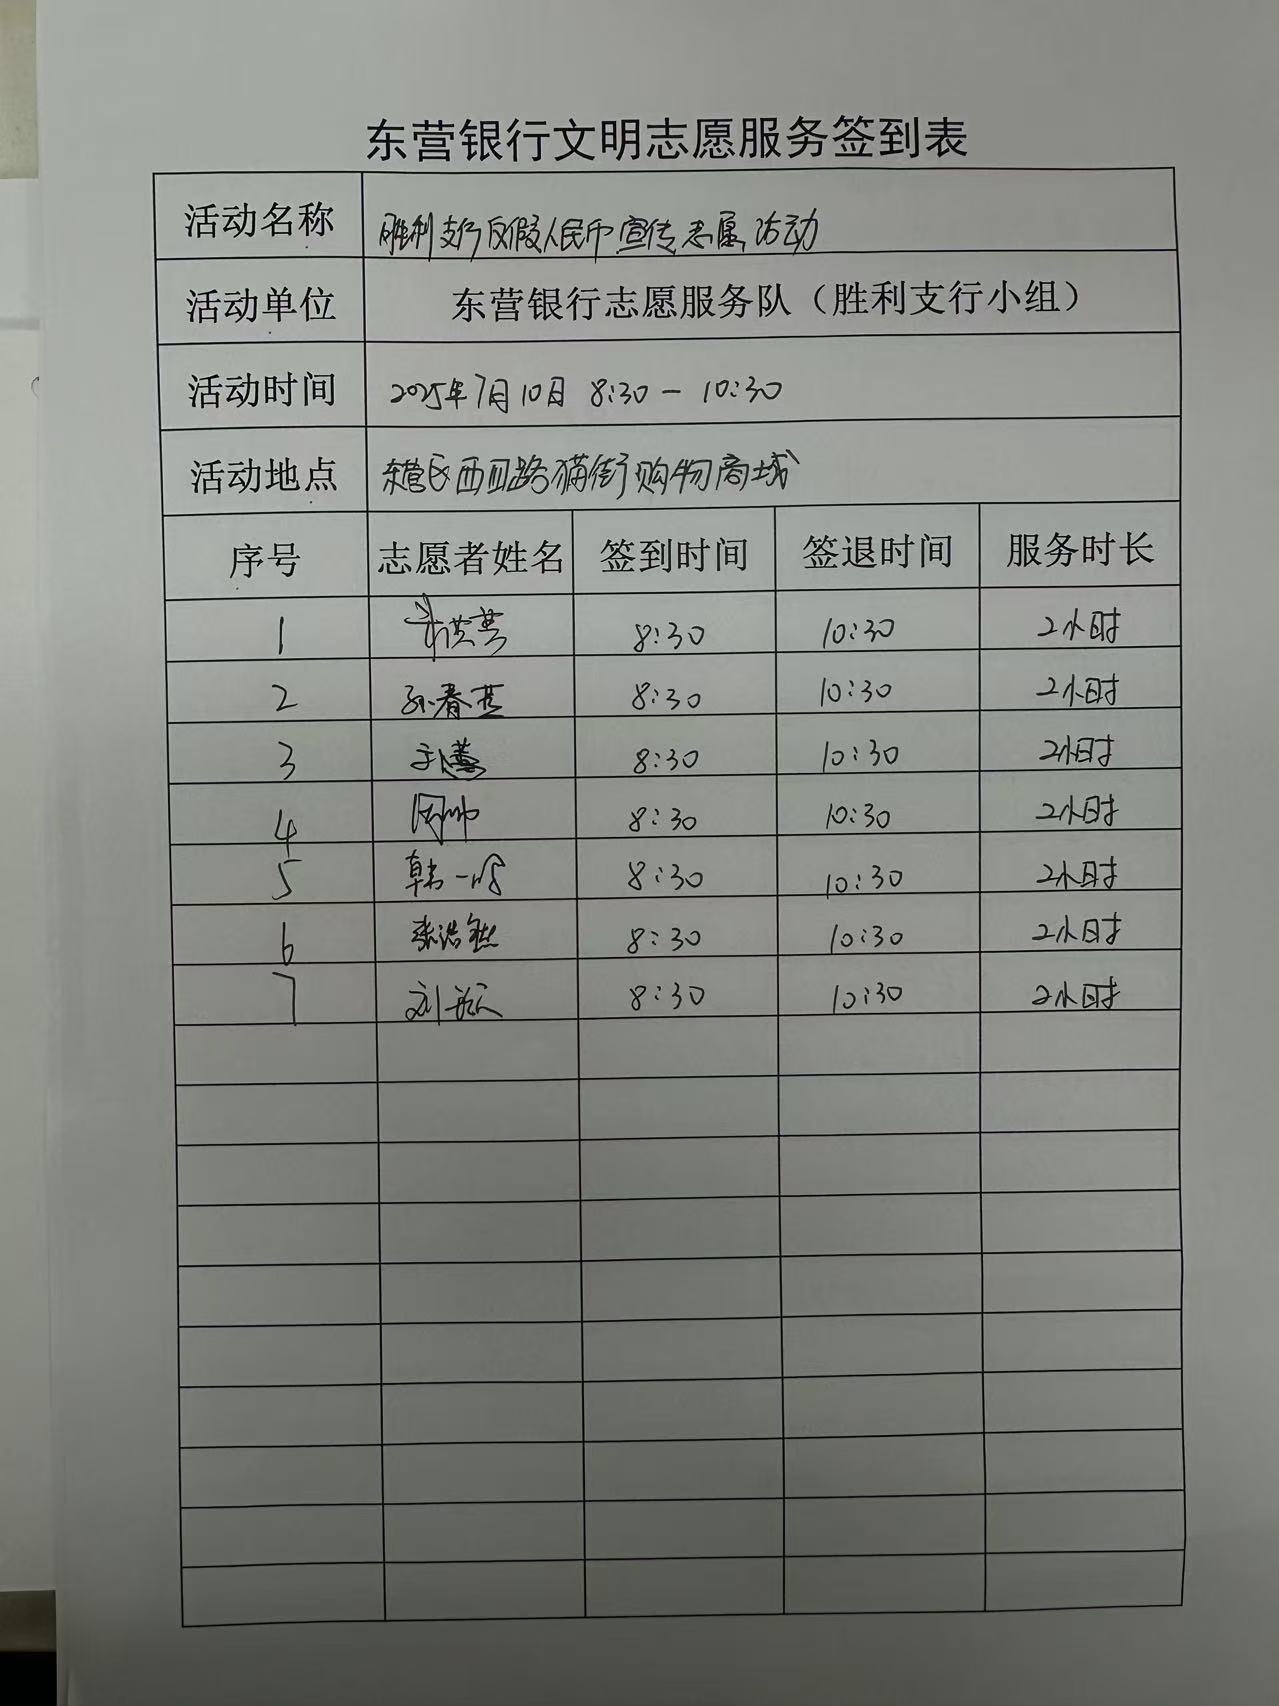 东营银行文明志愿服务签到表
活动名称 胜利支行反假人民币宣传志愿活动
活动单位 东营银行志愿服务队（胜利支行小组）
活动时间 2025年7月10日 8:30－10:30
活动地点 东营区西四路猫街购物商城
序号 志愿者姓名 签到时间 签退时间 服务时长
1 8:30 10:30 2小时
2 孙春燕 8:30 10:30 2小时
3 8:30 10:30 2小时
4 周帅 8:30 10:30 2小时
5 韩一鸣 8:30 10:30 2小时
6 张浩 8:30 10:30 2小时
7 刘 8:30 10:30 2小时